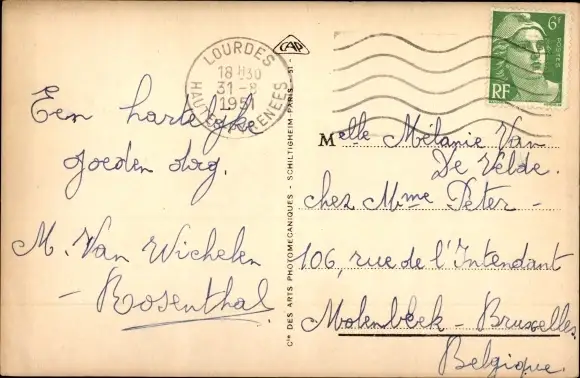 Een hartelijke
goeden dag.
M. Van Wichelen
- Rosenthal
LOURDES
18 H30
31-8
1951
HAUTES-PYRENEES
CAP
Cie DES ARTS PHOTOMECANIQUES - SCHILTIGHEIM-PARIS - 51 -
6F
POSTES
RF
Melle Mélanie Van
De Velde.
chez Mme Peter -
106, rue de l'Intendant
Molenbeek - Bruxelles.
Belgique.